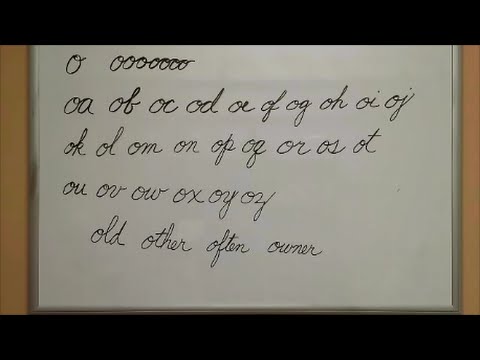 o ooooooo
oa ob oc od oe of og oh oi oj
ok ol om on op oq or os ot
ou ov ow ox oy oz
old other often owner